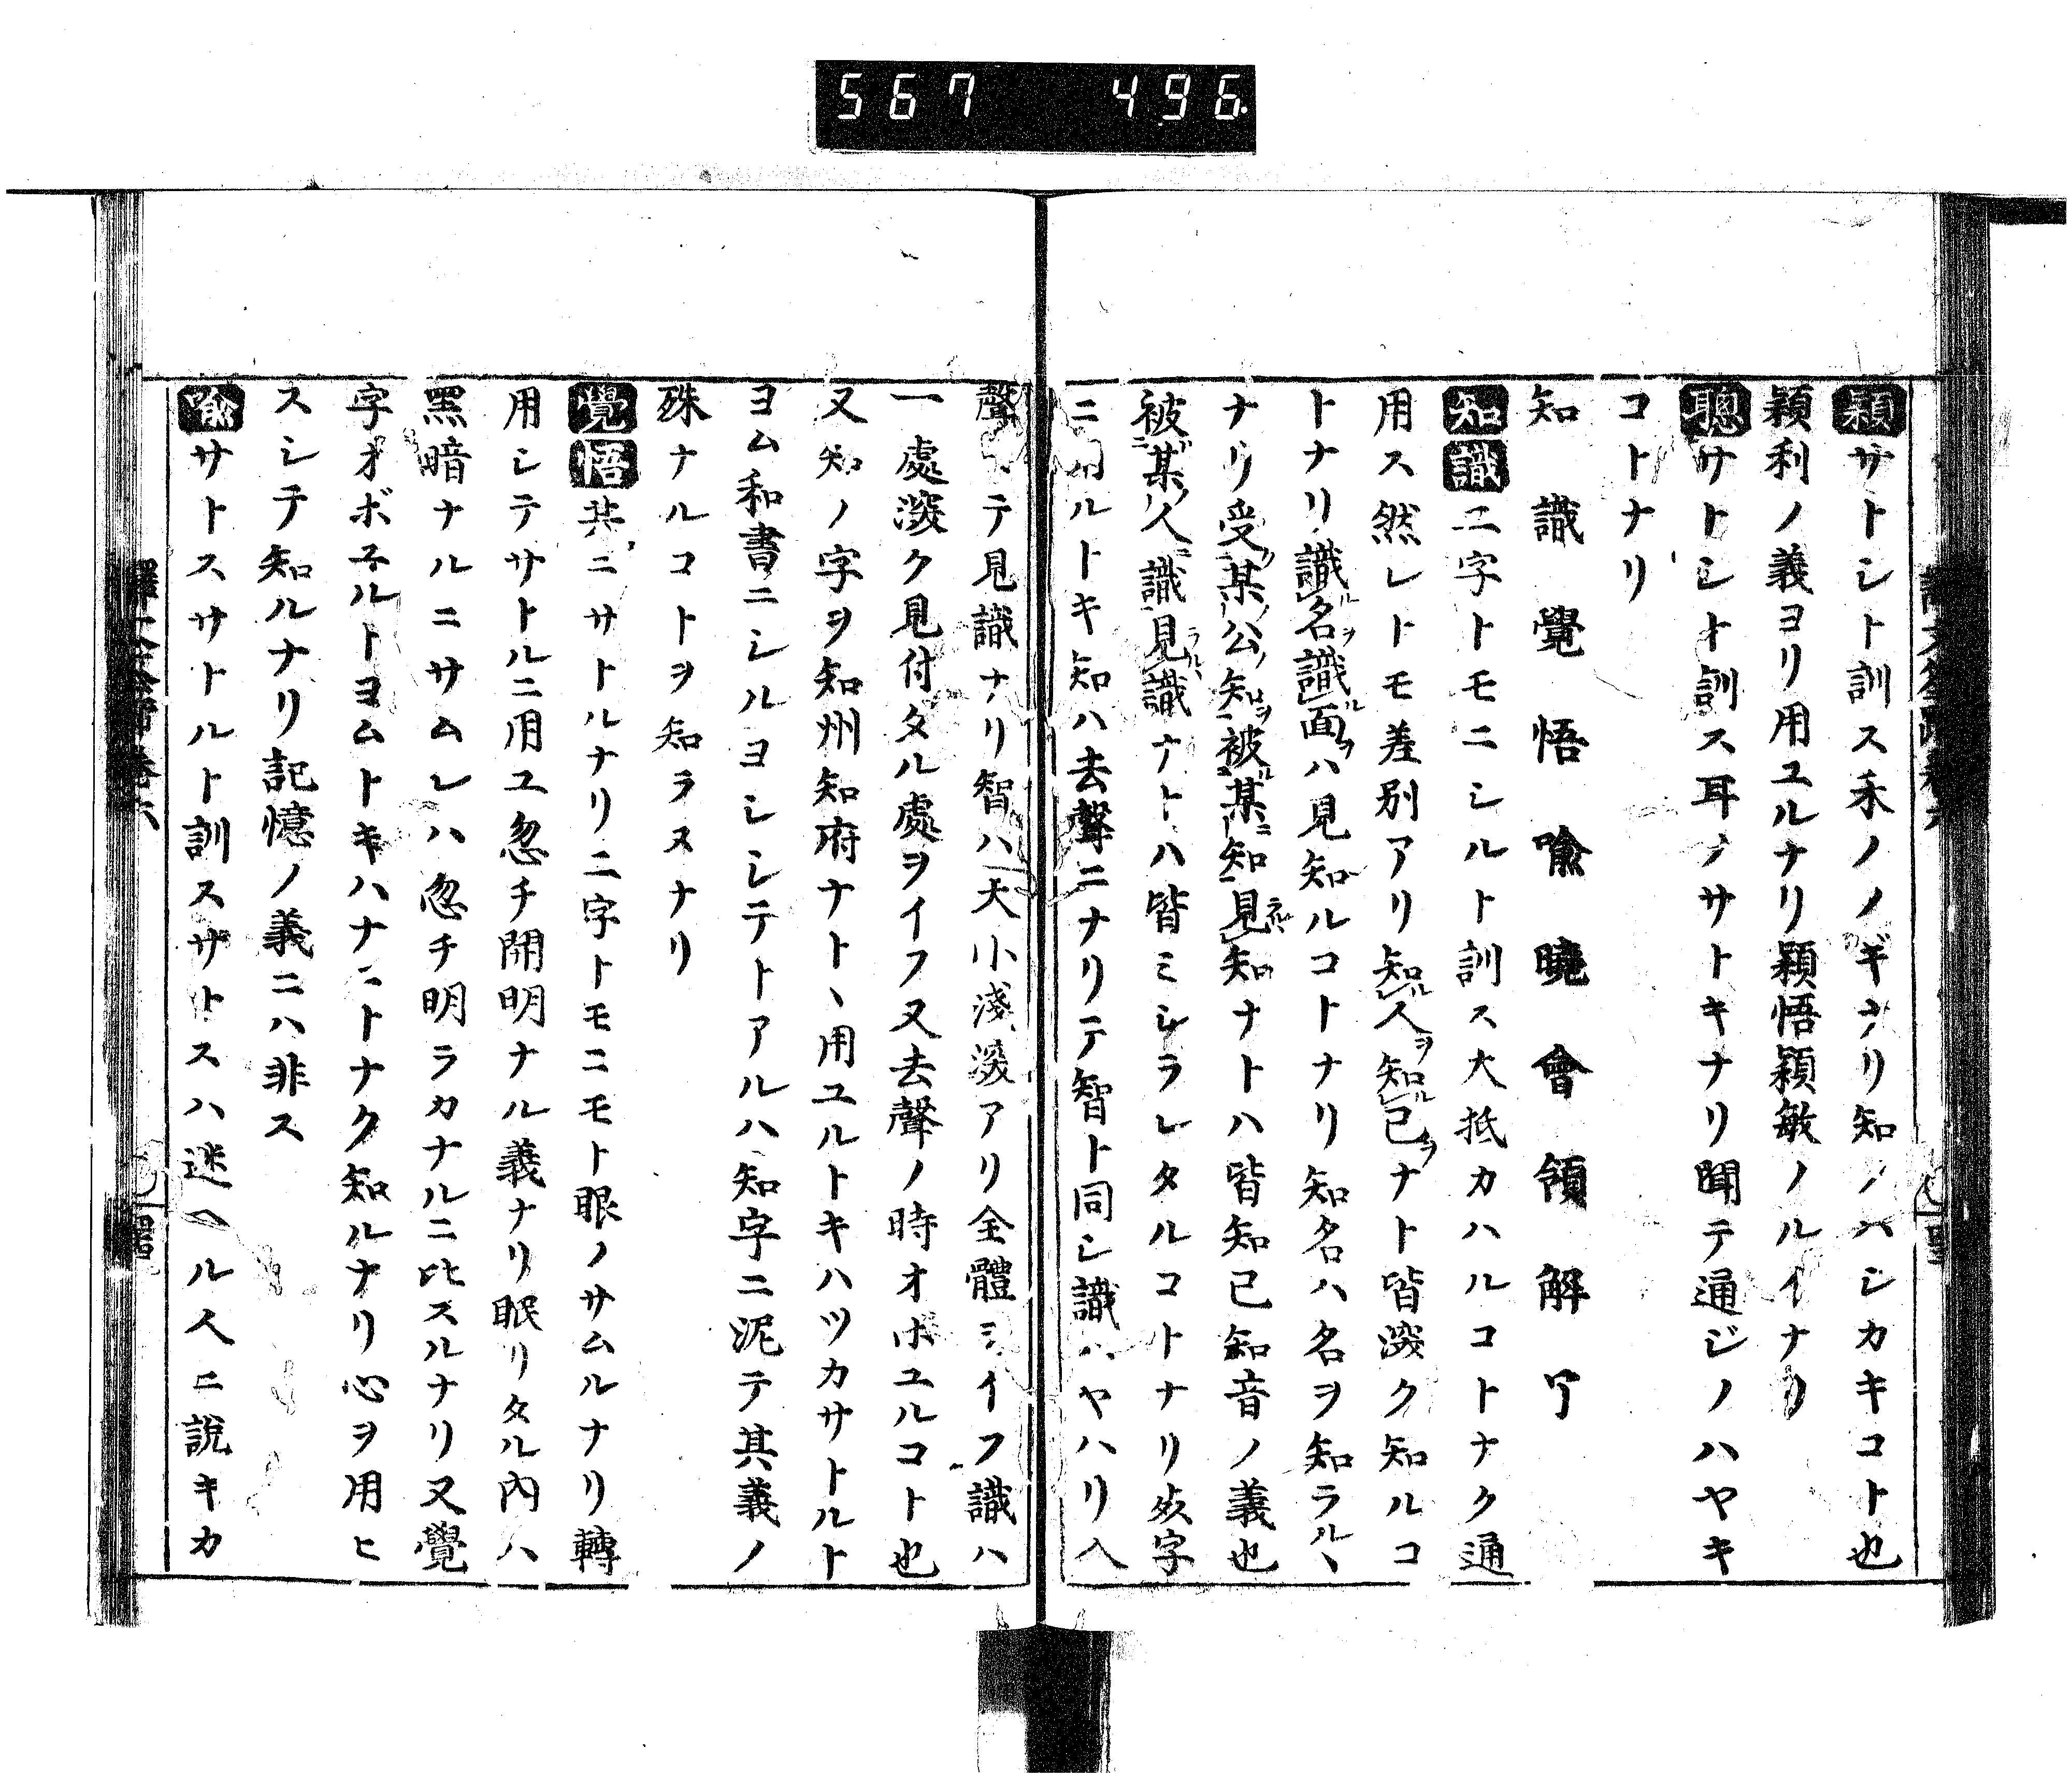 567 496
穎サトシト訓ス禾ノノギナリ知ノハシカキコト也
穎利ノ義ヨリ用ユルナリ穎悟穎敏ノルイナリ
聰サトシト訓ス耳ノサトキナリ聞テ通ジノハヤキ
コトナリ
知識覺悟喩曉會領解了
知識二字トモニシルト訓ス大抵カハルコトナク通
用ス然レトモ差別アリ知ル人ヲ知ル已ヲナト皆深ク知ルコ
トナリ識ル名ヲ識ル面ヲハ見知ルコトナリ知名ハ名ヲ知ラルヽ
ナリ受某公知被某知見知ナトハ皆知已知音ノ義也
被某人識見識ナトハ皆ミシラレタルコトナリ死字
ニ用ルトキ知ハ去聲ニナリテ智ト同シ識ハヤハリ入
聲ニテ見識ナリ智ハ大小淺深アリ全體ニイフ識ハ
一處深ク見付タル處ヲイフ又去聲ノ時オホユルコト也
又知ノ字ヲ知州知府ナトヽ用ユルトキハツカサトルト
ヨム和書ニシルヨシシテトアルハ知字ニ泥テ其義ノ
殊ナルコトヲ知ラヌナリ
覺悟共ニサトルナリ二字トモニモト眼ノサムルナリ轉
用シテサトルニ用ユ忽チ開明ナル義ナリ眠リタル内ハ
黑暗ナルニサムレハ忽チ明ラカナルニ比スルナリ又覺
字オボヱルトヨムトキハナニトナク知ルナリ心ヲ用ヒ
スシテ知ルナリ記憶ノ義ニハ非ス
喩サトスサトルト訓スサトスハ迷ヘル人ニ說キカ